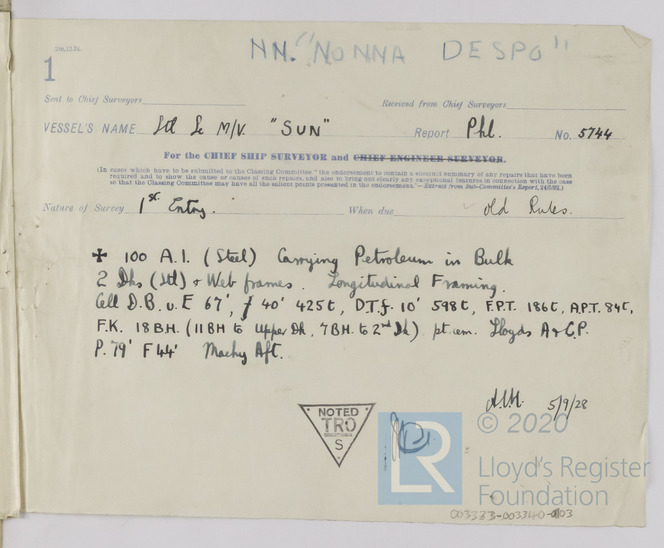 2m,12,24.
1
NN. "NONNA DESPO"
Sent to Chief Surveyors
Received from Chief Surveyors
VESSEL'S NAME Stl Sc M/V. "SUN" Report Phl. No. 5744
For the CHIEF SHIP SURVEYOR and CHIEF ENGINEER SURVEYOR.
(In cases which have to be submitted to the Classing Committee "the endorsement to contain a succinct summary of any repairs that have been
required and to show the cause or causes of such repairs, and also to bring out clearly any exceptional features in connection with the case
so that the Classing Committee may have all the salient points presented in the endorsement."—Extract from Sub-Committee's Report, 24/5/92.)
Nature of Survey 1st Entry. When due Old Rules.
✠ 100 A.1. (Steel) Carrying Petroleum in Bulk
2 Dks (Stl) & Web frames. Longitudinal Framing.
Cell D.B. u. E 67', f 40' 425t, D.T.f. 10' 598t, F.P.T. 186t, A.P.T. 84t,
F.K. 18 B.H. (11 BH to Upper Dk, 7 B.H. to 2nd Dk) pt. cem. Lloyds A & C.P.
P. 79' F 44' Machy Aft.
5/9/28
NOTED
TRO
S
LR
© 2020
Lloyd's Register
Foundation
003333-003340-0103